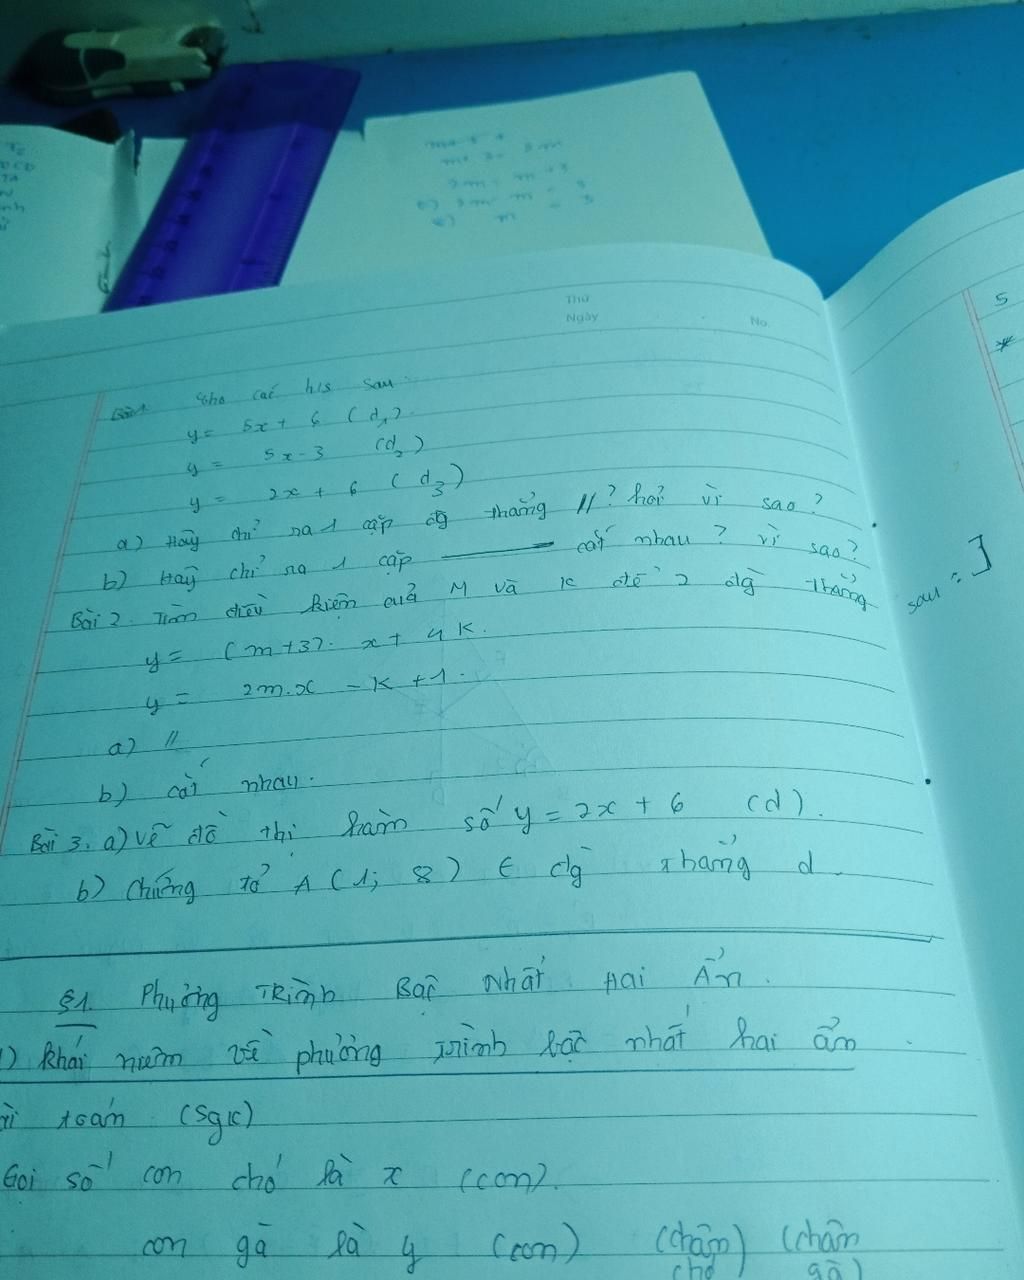 Thứ
Ngày
No.
Bài 1. Cho các h/s sau:
y = 5x + 6 (d₁).
y = 5x - 3 (d₂)
y = 2x + 6 (d₃)
a) Hãy chỉ ra 1 cặp đg thẳng // ? hỏi vì sao?
b) Hãy chỉ ra 1 cặp ——— cắt nhau? vì sao?
Bài 2. Tìm điều kiện của M và K để 2 đg thẳng
sau:]
y = (m+3). x + 4K.
y = 2m.x - K + 1.
a) //
b) cắt nhau.
Bài 3. a) Vẽ đồ thị hàm số y = 2x + 6 (d).
b) Chứng tỏ A (1; 8) ∈ đg thẳng d.
§1. Phương Trình Bậc Nhất Hai Ẩn.
1) Khái niệm về phương trình bậc nhất hai ẩn.
toán (Sgk)
Gọi số con chó là x (con).
con gà là y (con) (chân chó) (chân gà)
5
*